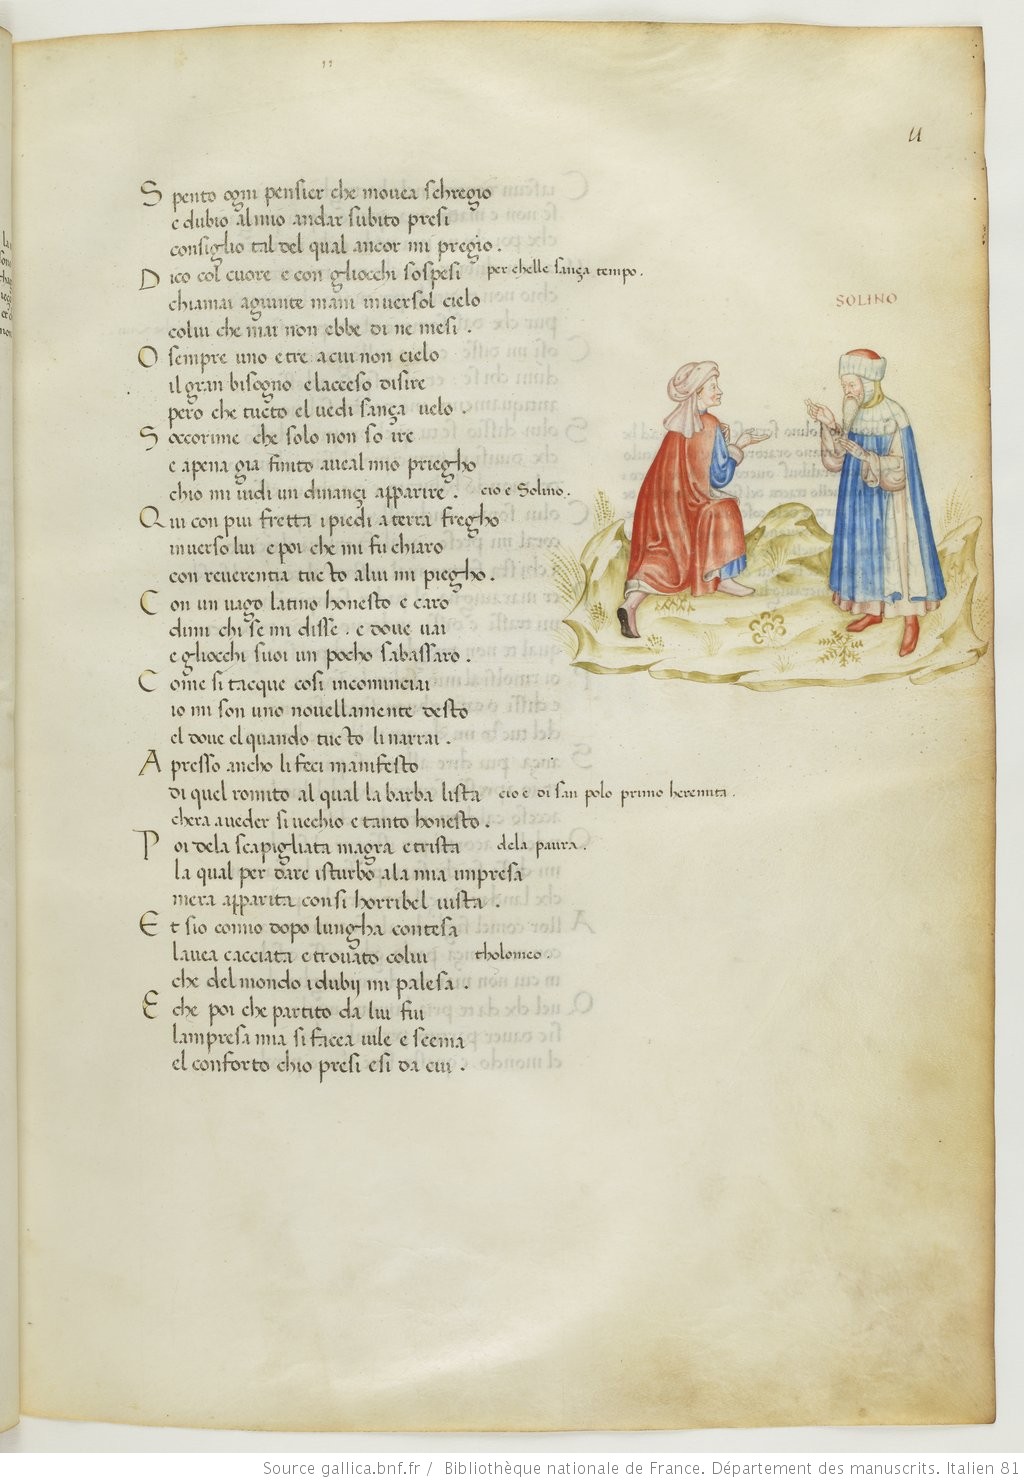 11
S pento ogni pensier che movea schregio
e dubio al mio andar subito presi
consiglio tal del qual ancor mi pregio .
D ico col cuore e con gliocchi sospesi per chelle sança tempo .
chiamai agiunte mani inversol cielo
colui che mai non ebbe di ne mesi .
SOLINO
O sempre uno e tre a cui non cielo
il gran bisogno e lacceso disire
pero che tucto el vedi sança velo .
S occorime che solo non so ire
e apena gia finito aveal mio priegho
chio mi vidi un dinançi apparire . cio e Solino .
Q ui con piu fretta i piedi a terra fregho
inverso lui e poi che mi fu chiaro
con reverentia tucto a lui mi piegho .
C on un vago latino honesto e caro
dimi chi se mi disse . e dove vai
e gliocchi suoi un pocho sabassaro .
C ome si tacque cosi incominciai
io mi son uno novellamente desto
el dove el quando tucto li narrai .
A presso ancho li feci manifesto
di quel romito al qual la barba lista cio e di san polo primo heremita .
chera a veder si vecchio e tanto honesto .
P oi dela scapigliata magra e trista dela paura .
la qual per dare isturbo ala mia impresa
mera apparita con si horribel vista .
E t sio comio dopo lungha contesa
lavea cacciata e trovato colui tholomeo .
che del mondo i dubij mi palesa .
E che poi che partito da lui fui
lampresa mia si facea vile e scema
el conforto chio presi e si da cui .
Source gallica.bnf.fr / Bibliothèque nationale de France. Département des manuscrits. Italien 81